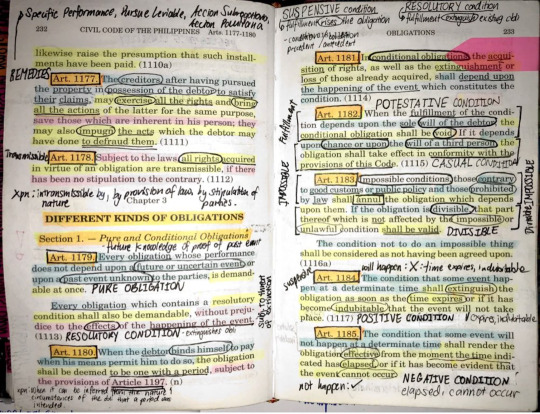 Specific Performance, Pursue Leviable, Accion Subrogatoria,
Accion Pauliana
232 CIVIL CODE OF THE PHILIPPINES Arts. 1177-1180
likewise raise the presumption that such install-
ments have been paid. (1110a)
REMEDIES
Art. 1177. The creditors, after having pursued
the property in possession of the debtor to satisfy
their claims, may exercise all the rights and bring
all the actions of the latter for the same purpose,
save those which are inherent in his person; they
may also impugn the acts which the debtor may
have done to defraud them. (1111)
Transmissible
Art. 1178. Subject to the laws, all rights acquired
in virtue of an obligation are transmissible, if there
has been no stipulation to the contrary. (1112)
xpn: intransmissible by, by provision of law, by stipulation of
nature parties.
Chapter 3
DIFFERENT KINDS OF OBLIGATIONS
Section 1. — Pure and Conditional Obligations
future knowledge of proof of past event
Art. 1179. Every obligation whose performance
does not depend upon a future or uncertain event, or
upon a past event unknown to the parties, is demand-
able at once. PURE OBLIGATION
Every obligation which contains a resolutory
condition shall also be demandable, without preju-
dice to the effects of the happening of the event.
(1113) RESOLUTORY CONDITION - extinguishes obli
Art. 1180. When the debtor binds himself to pay
when his means permit him to do so, the obligation
shall be deemed to be one with a period, subject to
the provisions of Article 1197. (n)
xpn: When it can be inferred from the nature &
circumstances of the obli that a period was
intended.
SUSPENSIVE condition
fulfillment arises the obligation
RESOLUTORY condition
fulfillment extinguish existing obli
OBLIGATIONS 233
Art. 1181. In conditional obligations, the acqui-
sition of rights, as well as the extinguishment or
loss of those already acquired, shall depend upon
the happening of the event which constitutes the
condition. (1114)
POTESTATIVE CONDITION
Fulfillment
Art. 1182. When the fulfillment of the condi-
tion depends upon the sole will of the debtor, the
conditional obligation shall be void. If it depends
upon chance or upon the will of a third person, the
obligation shall take effect in conformity with the
provisions of this Code. (1115) CASUAL CONDITION
IMPOSSIBLE
Art. 1183. Impossible conditions, those contrary
to good customs or public policy and those prohibited
by law shall annul the obligation which depends
upon them. If the obligation is divisible, that part
thereof which is not affected by the impossible or
unlawful condition shall be valid. DIVISIBLE
Divisible IMPOSSIBLE
The condition not to do an impossible thing
shall be considered as not having been agreed upon.
(1116a)
will happen: X: time expires, indubitable
Art. 1184. The condition that some event hap-
pen at a determinate time shall extinguish the
obligation as soon as the time expires or if it has
become indubitable that the event will not take
place. (1117) POSITIVE CONDITION
Art. 1185. The condition that some event will
not happen at a determinate time shall render the
obligation effective from the moment the time indi-
cated has elapsed, or if it has become evident that
the event cannot occur.
not happen: NEGATIVE CONDITION
elapsed, cannot occur